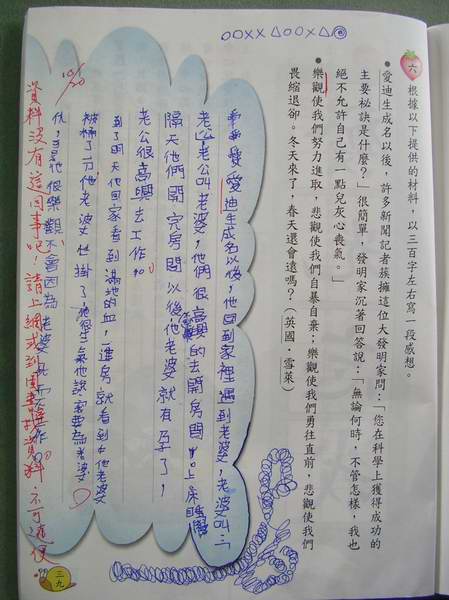 ○○××△○○×△
六 根據以下提供的材料，以三百字左右寫一段感想。
●愛迪生成名以後，許多新聞記者簇擁這位大發明家問：「您在科學上獲得成功的
主要祕訣是什麼？」很簡單，發明家沉著回答說：「無論何時，不管怎樣，我也
絕不允許自己有一點兒灰心喪氣。」
●樂觀使我們努力進取，悲觀使我們自暴自棄；樂觀使我們勇往直前，悲觀使我們
畏縮退卻。冬天來了，春天還會遠嗎？（英國．雪萊）
愛迪生成名以後，他回到家裡遇到老婆，老婆叫
老公，老公叫老婆，他們很高興的去開房間 上床睡覺
隔天他們開完房間以後，他老婆就有孕了，
老公很高興去工作
到了明天他回家看到滿地的血，進房就看到他老婆
被桶了 他老婆也掛了，他很生氣他說 要為老婆
仇，
他很樂觀不會因為老婆
10/20
資料沒有這回事吧！請上網或到圖書 找資料，不可隨便。
三九